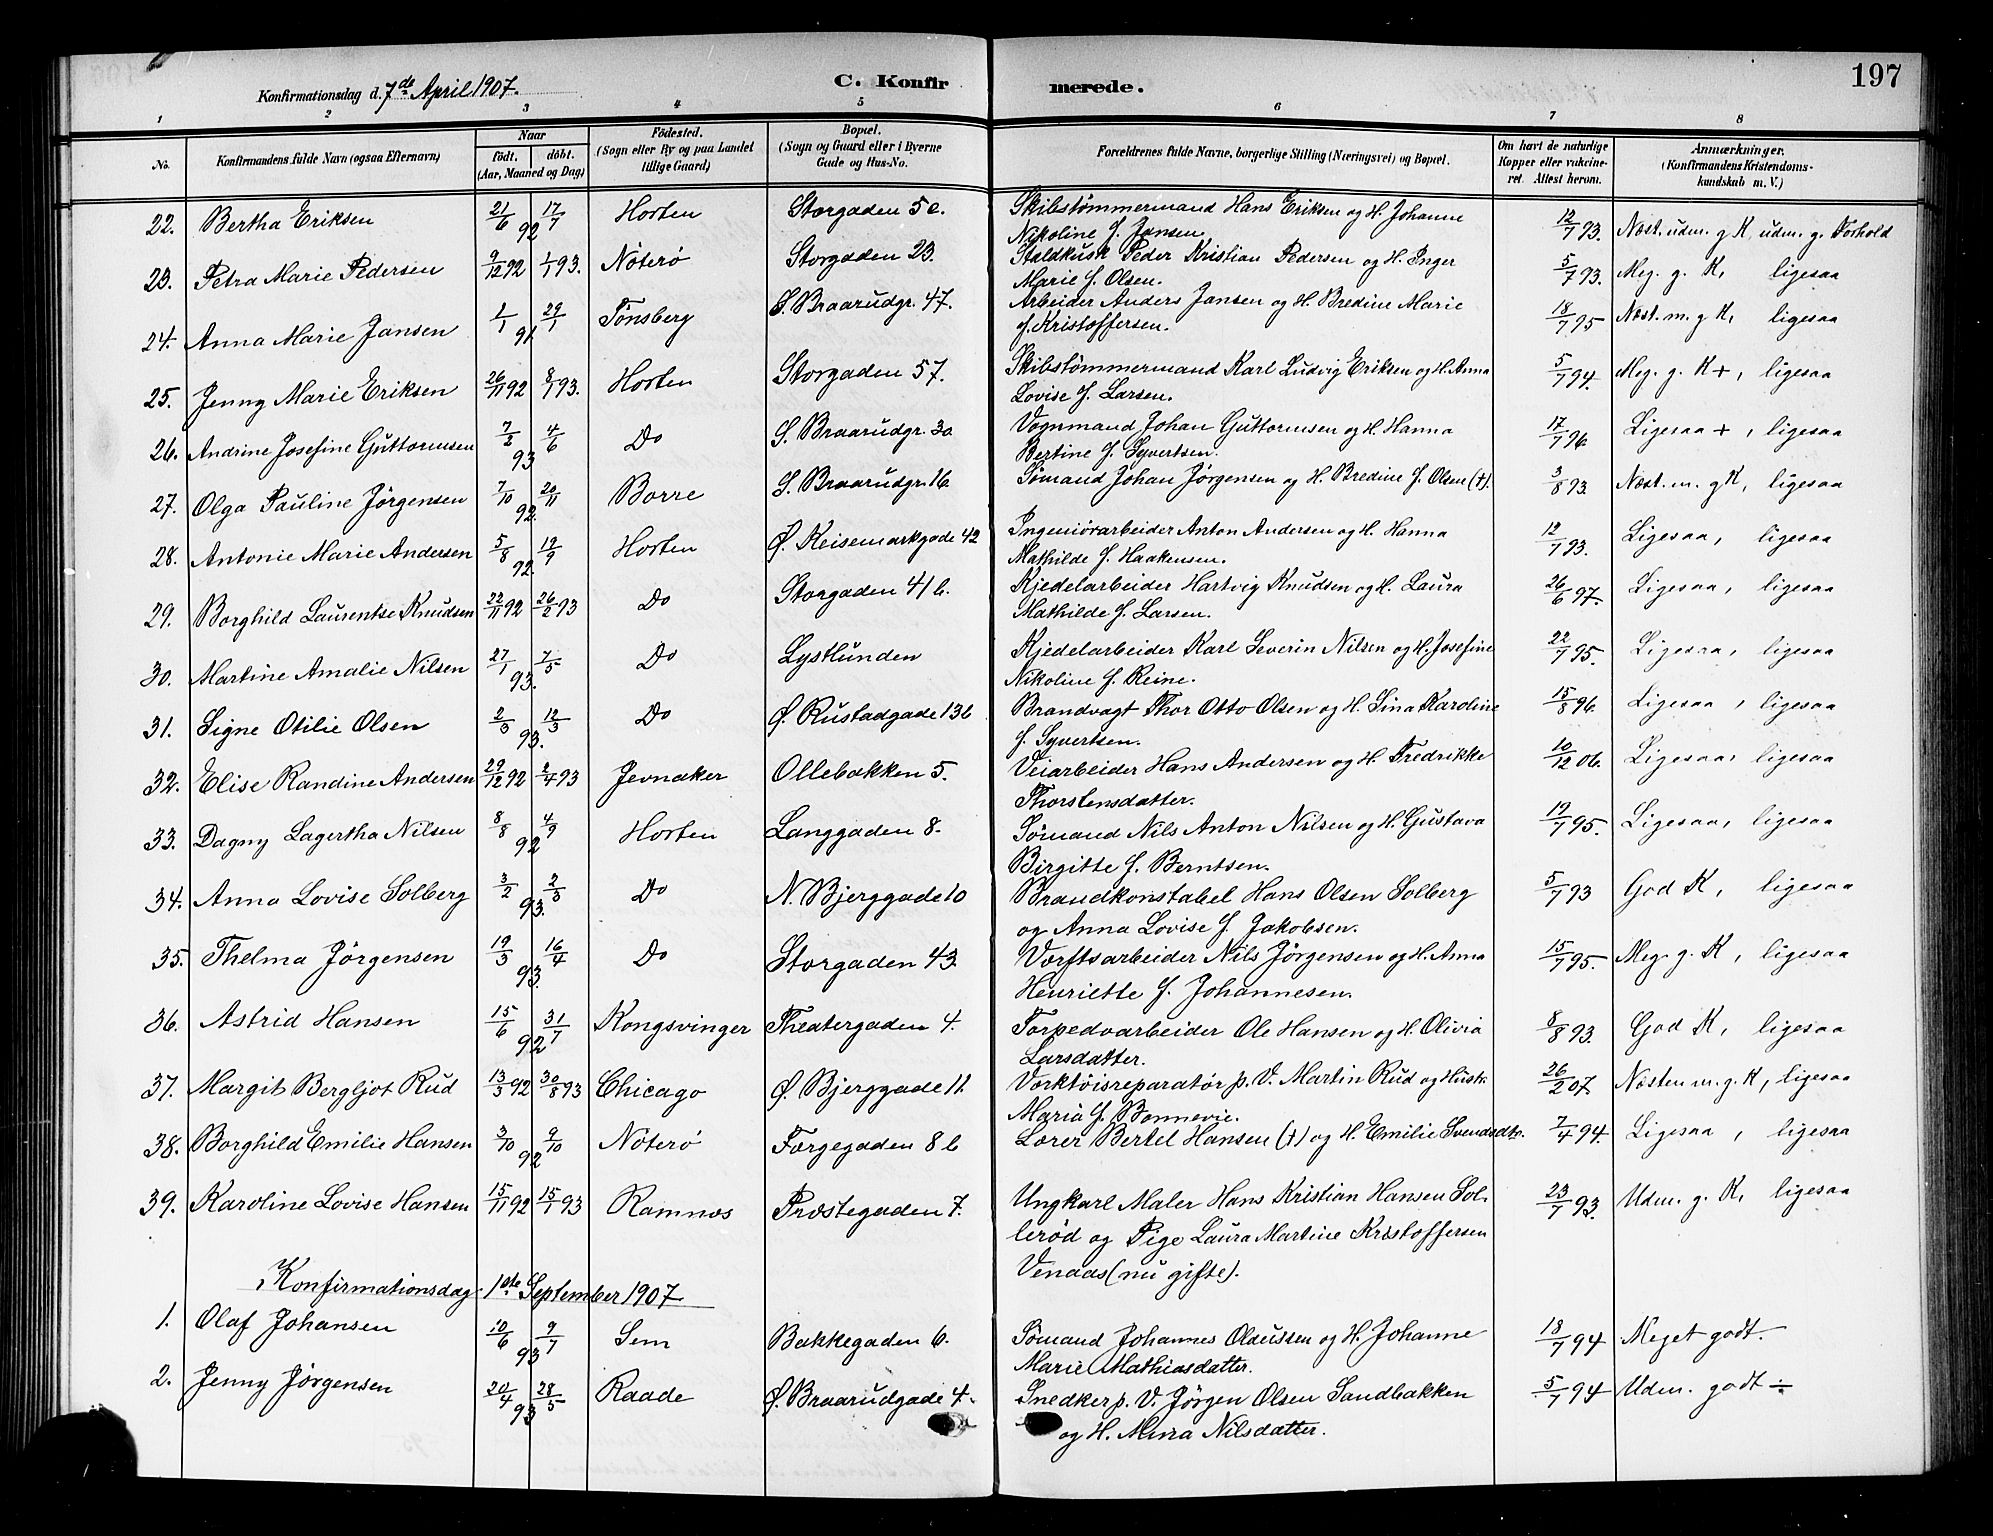 Konfirmationsdag d. 7de April 1907.
C. Konfirmerede.
197
1 2 3 4 5 6 7 8
No. | Konfirmandens fulde Navn (ogsaa Efternavn) | Naar født, døbt. (Aar, Maaned og Dag) | Fødested. (Sogn eller By og paa Landet tillige Gaard) | Bopæl. (Sogn og Gaard eller i Byerne Gade og Hus-No. | Forældrenes fulde Navne, borgerlige Stilling (Næringsvei) og Bopæl. | Om havt de naturlige Kopper eller vakcineret. Attest herom. | Anmærkninger. (Konfirmandens Kristendomskundskab m. V.)
22. Bertha Eriksen 21/6 17/7 92 Horten Storgaden 5c. Skibstømmermand Hans Eriksen og H. Johanne 12/7 93. Næst. udm. g K, udm. g. Forhold
Nikoline f. Jansen
23. Petra Marie Pedersen 9/12 92 1/1 93. Nøterø Storgaden 23. Staldkusk Peder Kristian Pedersen og H. Inger 5/7 93. Meg. g. K, ligesaa
Marie f. Olsen.
24. Anna Marie Jansen 1/1 29/1 91 Tønsberg S. Braarudgr. 47. Arbeider Anders Jansen og H. Bredine Marie 18/7 95 Næst. m. g K, ligesaa
f. Kristoffersen.
25. Jenny Marie Eriksen 26/11 92 8/1 93. Horten Storgaden 57. Skibstømmermand Karl Ludvig Eriksen og H. Anna 5/7 94. Meg. g. K +, ligesaa
Lovise f. Larsen.
26. Andrine Josefine Guttormsen 7/2 4/6 93 Do S. Braarudgr. 30. Vognmand Johan Guttormsen og H. Hanna 17/7 96. Ligesaa +, ligesaa
Bertine f. Syvertsen.
27. Olga Pauline Jørgensen 7/10 20/11 92. Borre S. Braarudgr. 16 Sømand Johan Jørgensen og H. Bredine f. Olsen (†). 3/8 93. Næst. m. g K, ligesaa
28. Antonie Marie Andersen 5/8 12/9 92. Horten Ø. Keisemarkgade 42 Ingeniørarbeider Anton Andersen og H. Hanna 12/7 93. Ligesaa, ligesaa
Mathilde f. Haakensen.
29. Borghild Laurentse Knudsen 22/11 92 26/2 93 Do Storgaden 41 b. Kjedelarbeider Hartvig Knudsen og H. Laura 26/6 97. Ligesaa, ligesaa
Mathilde f. Larsen.
30. Martine Amalie Nilsen 27/1 7/5 93. Do Lystlunden Kjedelarbeider Karl Severin Nilsen og H. Josefine 22/7 95. Ligesaa, ligesaa
Nikoline f. Reine.
31. Signe Otilie Olsen 2/3 12/3 93. Do Ø. Rustadgade 13b Brandvagt Thor Otto Olsen og H. Sina Karoline 15/8 96. Ligesaa, ligesaa
f. Syvertsen.
32. Elise Randine Andersen 29/12 92 2/4 93 Jevnaker Ollebakken 5. Veiarbeider Hans Andersen og H. Fredrikke 10/12 06. Ligesaa, ligesaa
Thorstensdatter.
33. Dagny Lagertha Nilsen 8/8 4/9 92 Horten Langgaden 8. Sømand Nils Anton Nilsen og H. Gustava 19/7 95. Ligesaa, ligesaa
Birgitte f. Berntsen.
34. Anna Lovise Solberg 3/2 2/3 93. Do N. Bjerggade 10 Brandkonstabel Hans Olsen Solberg 5/7 93 God K, ligesaa
og Anna Lovise f. Jakobsen.
35. Thelma Jørgensen 19/3 16/4 93. Do Storgaden 43. Værftsarbeider Nils Jørgensen og H. Anna 15/7 95. Meg. g. K, ligesaa
Henriette f. Johannesen.
36. Astrid Hansen 15/6 31/7 92 Kongsvinger Theatergaden 4. Torpedoarbeider Ole Hansen og H. Olivia 8/8 93. God K, ligesaa
Larsdatter.
37. Margit Bergljot Rud 13/3 92 30/8 93 Chicago Ø. Bjerggade 11. Værktøisreparatør p. V. Martin Rud og Hustr. 26/2 07. Næsten m. g. K, ligesaa
Maria f. Bonnevie.
38. Borghild Emilie Hansen 3/10 9/10 92 Nøterø Færgegaden 8 b Lærer Bertel Hansen (†) og H. Emilie Svendsdtr. 7/4 94. Ligesaa, ligesaa
39. Karoline Lovise Hansen 15/11 92 15/1 93 Ramnæs Præstegaden 7. Ungkarl Maler Hans Kristian Hansen Sol- 23/7 93. Udm. g. K, ligesaa
lerød og Pige Laura Martine Kristoffersen
Venaas (nu gifte).
Konfirmationsdag 1ste September 1907
1. Olaf Johansen 10/6 9/7 93 Sem Bakkegaden 6. Sømand Johannes Olaussen og H. Johanne 18/7 94 Meget godt.
Marie Mathiasdatter.
2. Jenny Jørgensen 20/4 28/5 93 Raade Ø. Braarudgade 4. Snedker p. V. Jørgen Olsen Sandbakken 5/7 94 Udm. godt ÷
og H. Mina Nilsdatter.